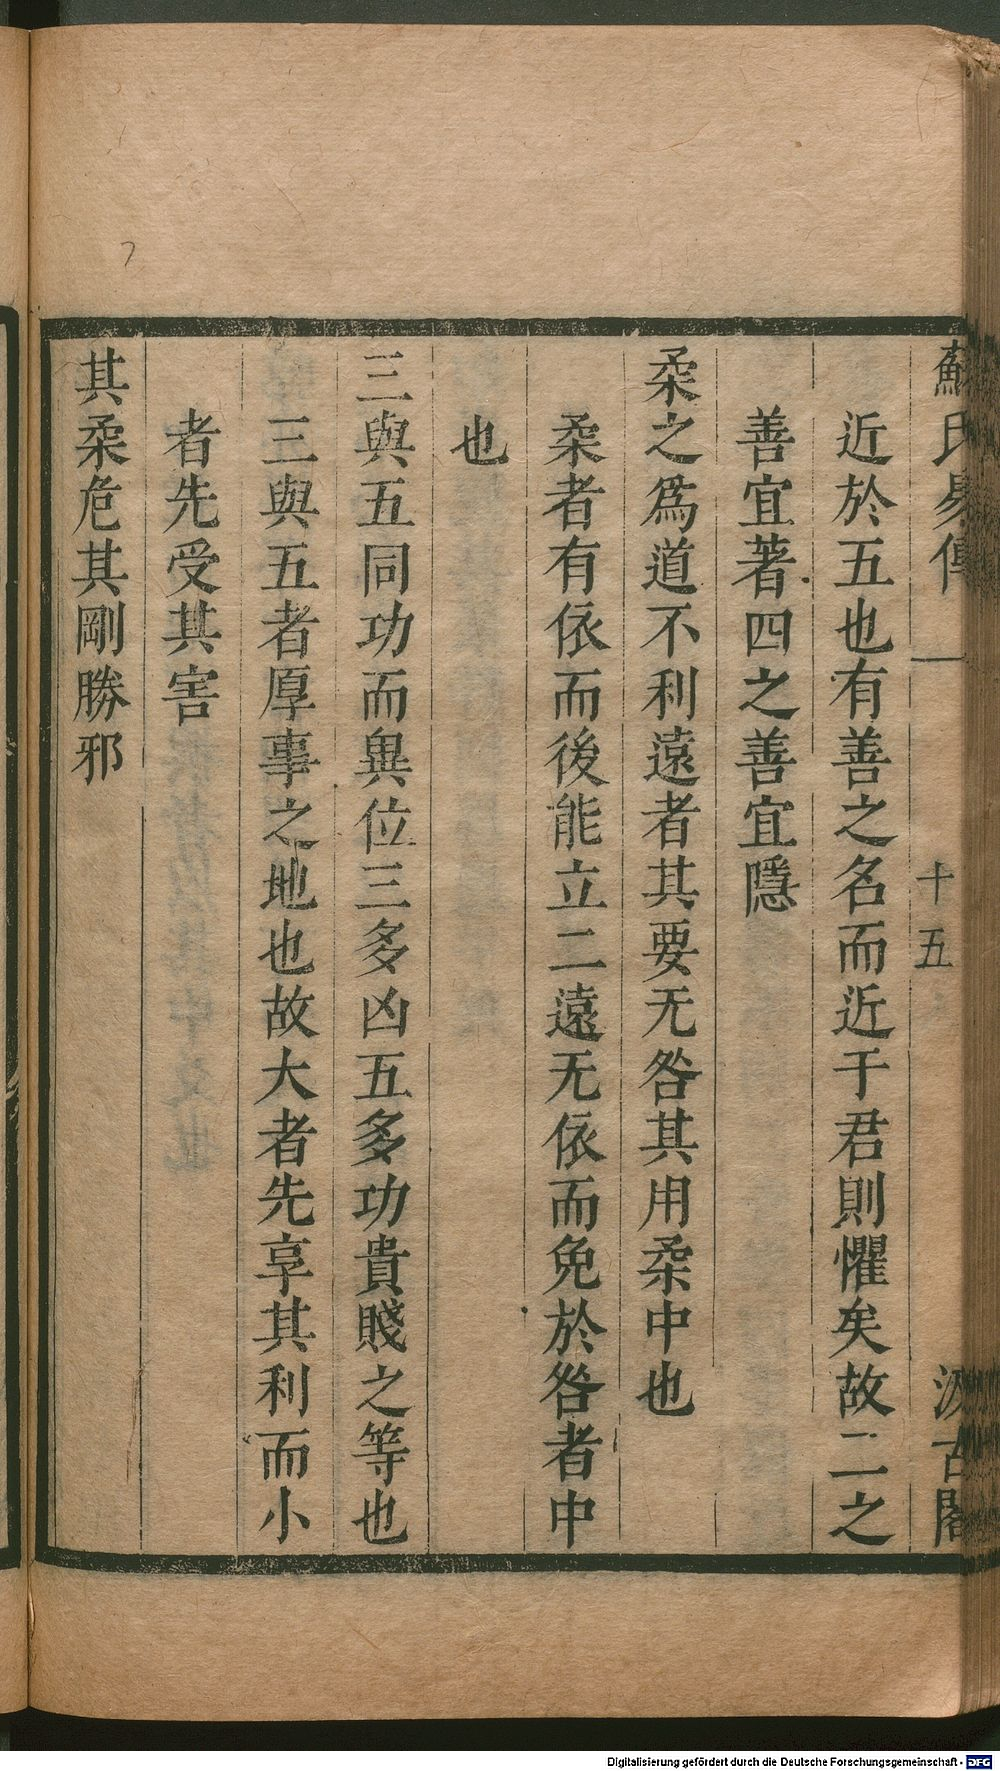 蘇氏易傳 十五 汲古閣
近於五也有善之名而近于君則懼矣故二之
善宜著四之善宜隱
柔之爲道不利遠者其要无咎其用柔中也
柔者有依而後能立二遠无依而免於咎者中
也
三與五同功而異位三多凶五多功貴賤之等也
三與五者厚事之地也故大者先享其利而小
者先受其害
其柔危其剛勝邪
Digitalisierung gefördert durch die Deutsche Forschungsgemeinschaft - DFG